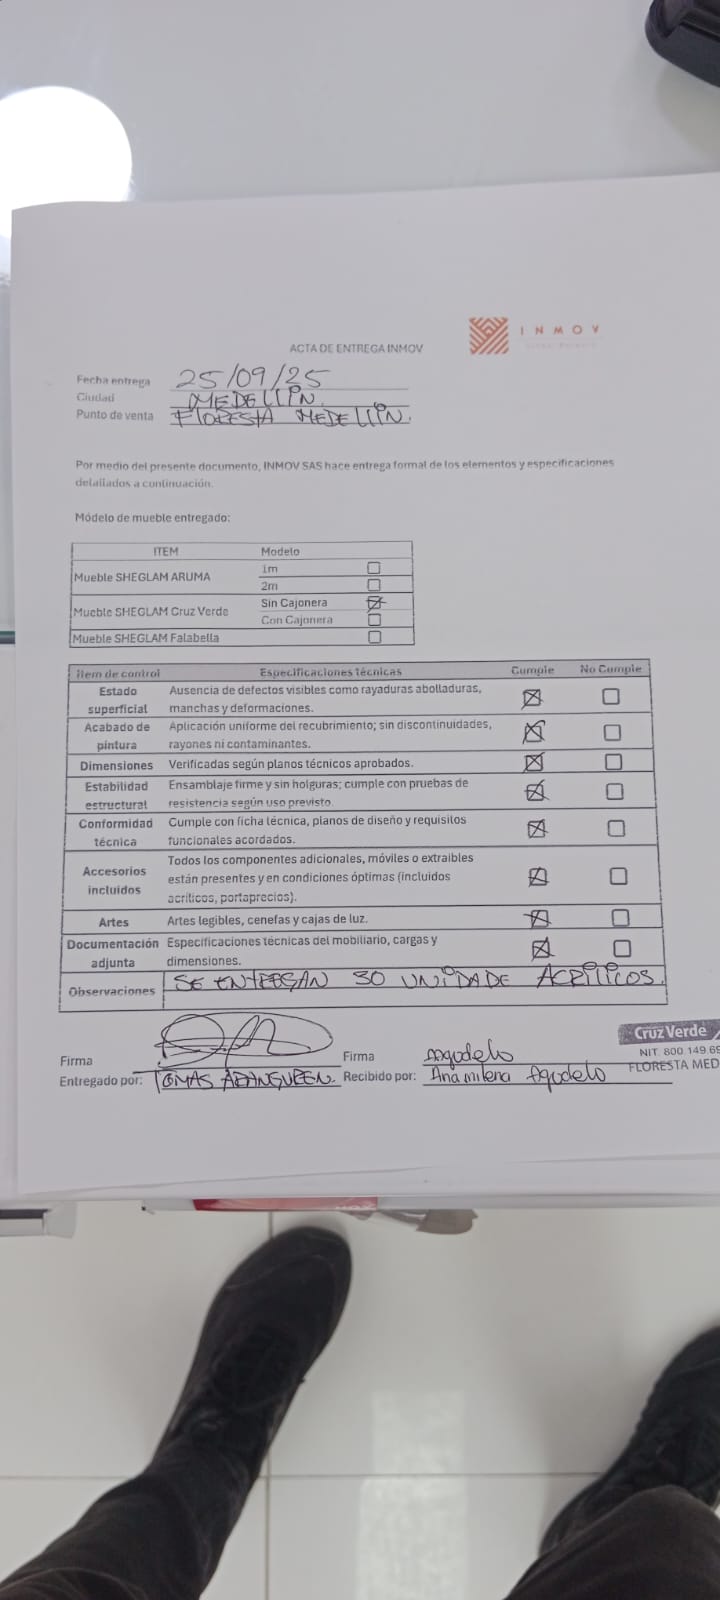 INMOV
ACTA DE ENTREGA INMOV
Fecha entrega 25/09/25
Ciudad MEDELLIN.
Punto de venta FLORESTA MEDELLIN.
Por medio del presente documento, INMOV SAS hace entrega formal de los elementos y especificaciones
detallados a continuación.
Módelo de mueble entregado:
ITEM Modelo
Mueble SHEGLAM ARUMA 1m
2m
Mueble SHEGLAM Cruz Verde Sin Cajonera
Con Cajonera
Mueble SHEGLAM Falabella
Ítem de control Especificaciones técnicas Cumple No Cumple
Estado superficial Ausencia de defectos visibles como rayaduras abolladuras,
manchas y deformaciones.
Acabado de pintura Aplicación uniforme del recubrimiento; sin discontinuidades,
rayones ni contaminantes.
Dimensiones Verificadas según planos técnicos aprobados.
Estabilidad estructural Ensamblaje firme y sin holguras; cumple con pruebas de
resistencia según uso previsto.
Conformidad técnica Cumple con ficha técnica, planos de diseño y requisitos
funcionales acordados.
Accesorios incluidos Todos los componentes adicionales, móviles o extraibles
están presentes y en condiciones óptimas (incluidos
acrílicos, portaprecios).
Artes Artes legibles, cenefas y cajas de luz.
Documentación adjunta Especificaciones técnicas del mobiliario, cargas y
dimensiones.
Observaciones SE ENTREGAN 30 UNIDADE ACRILICOS.
Firma Firma Agudelo
Entregado por: TOMAS ARANGUREN. Recibido por: Ana milena Agudelo
Cruz Verde
NIT. 800.149.69
FLORESTA MED